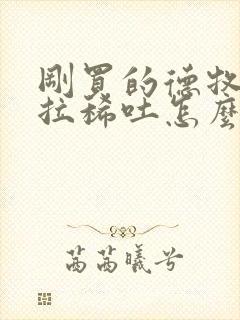 剛買的德牧
拉稀吐怎麼
茜茜曦兮